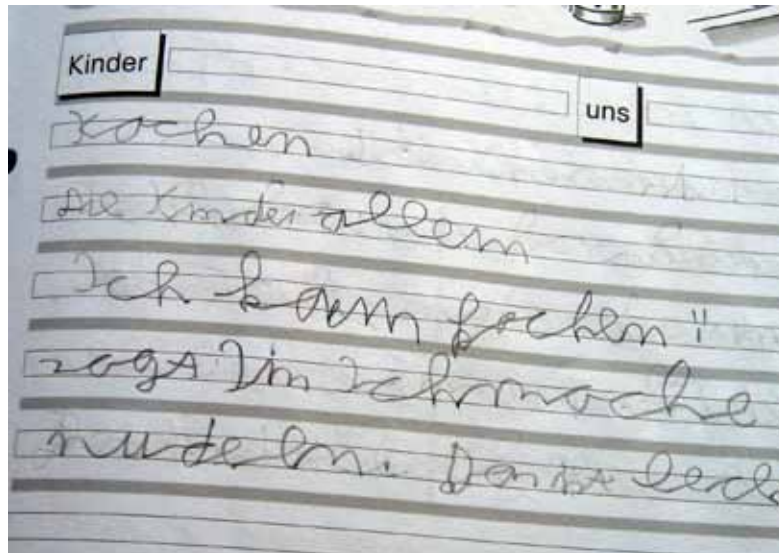 Kinder uns
kochen
die Kinder allein
Ich kann kochen"
sagt Tim Ich mache
nudeln. Das ist leck